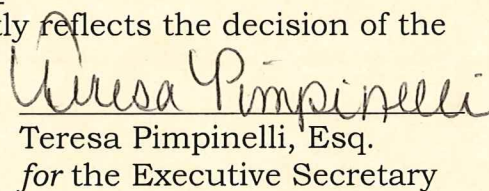 tly reflects the decision of the
Teresa Pimpinelli
Teresa Pimpinelli, Esq.
for the Executive Secretary